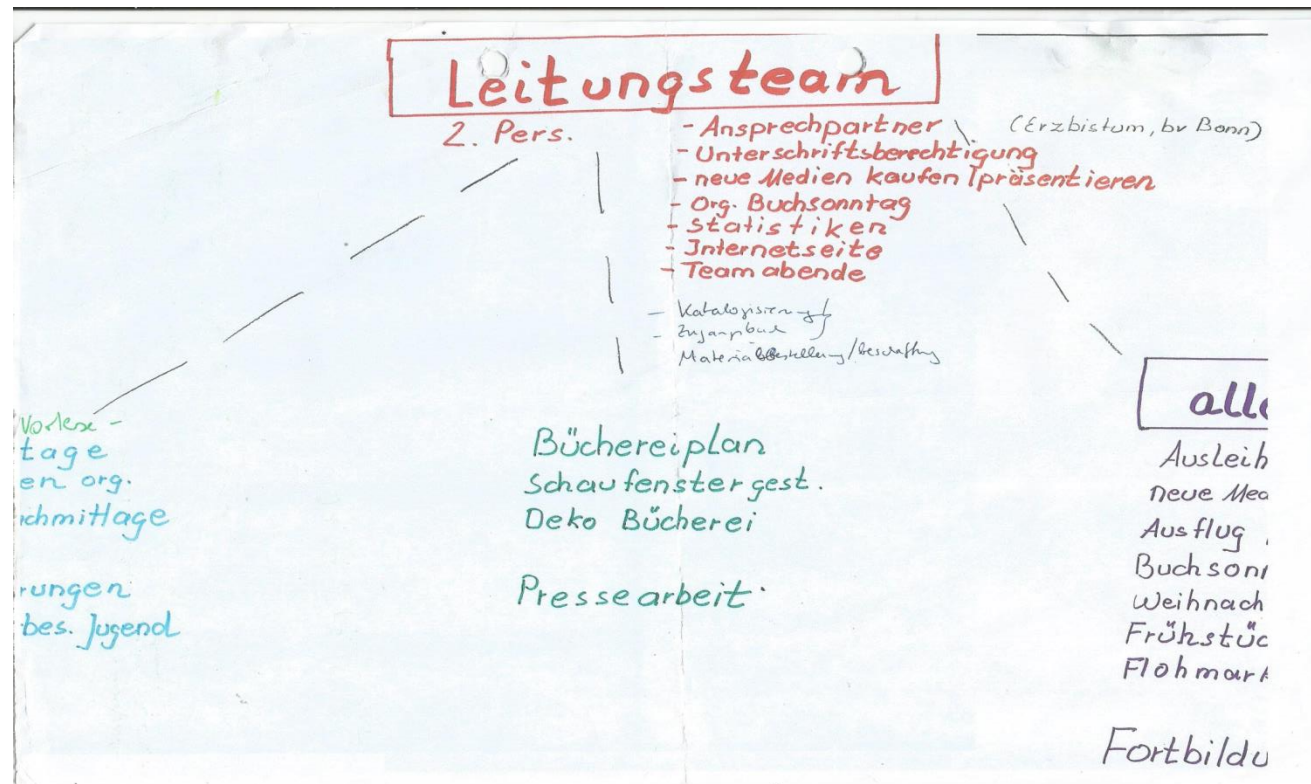 Leitungsteam
2. Pers.
- Ansprechpartner (Erzbistum, bv Bonn)
- Unterschriftsberechtigung
- neue Medien kaufen/präsentieren
- Org. Buchsonntag
- Statistiken
- Internetseite
- Teamabende
- Katalogisierung
- Zugangsbuch
Materialbestellung/beschaffung
Vorlese-
tage
en org.
chmittage
rungen
bes. Jugend
Büchereiplan
Schaufenstergest.
Deko Bücherei
Pressearbeit.
alle
Ausleih
neue Med
Ausflug
Buchsonn
Weihnach
Frühstüc
Flohmark
Fortbildu